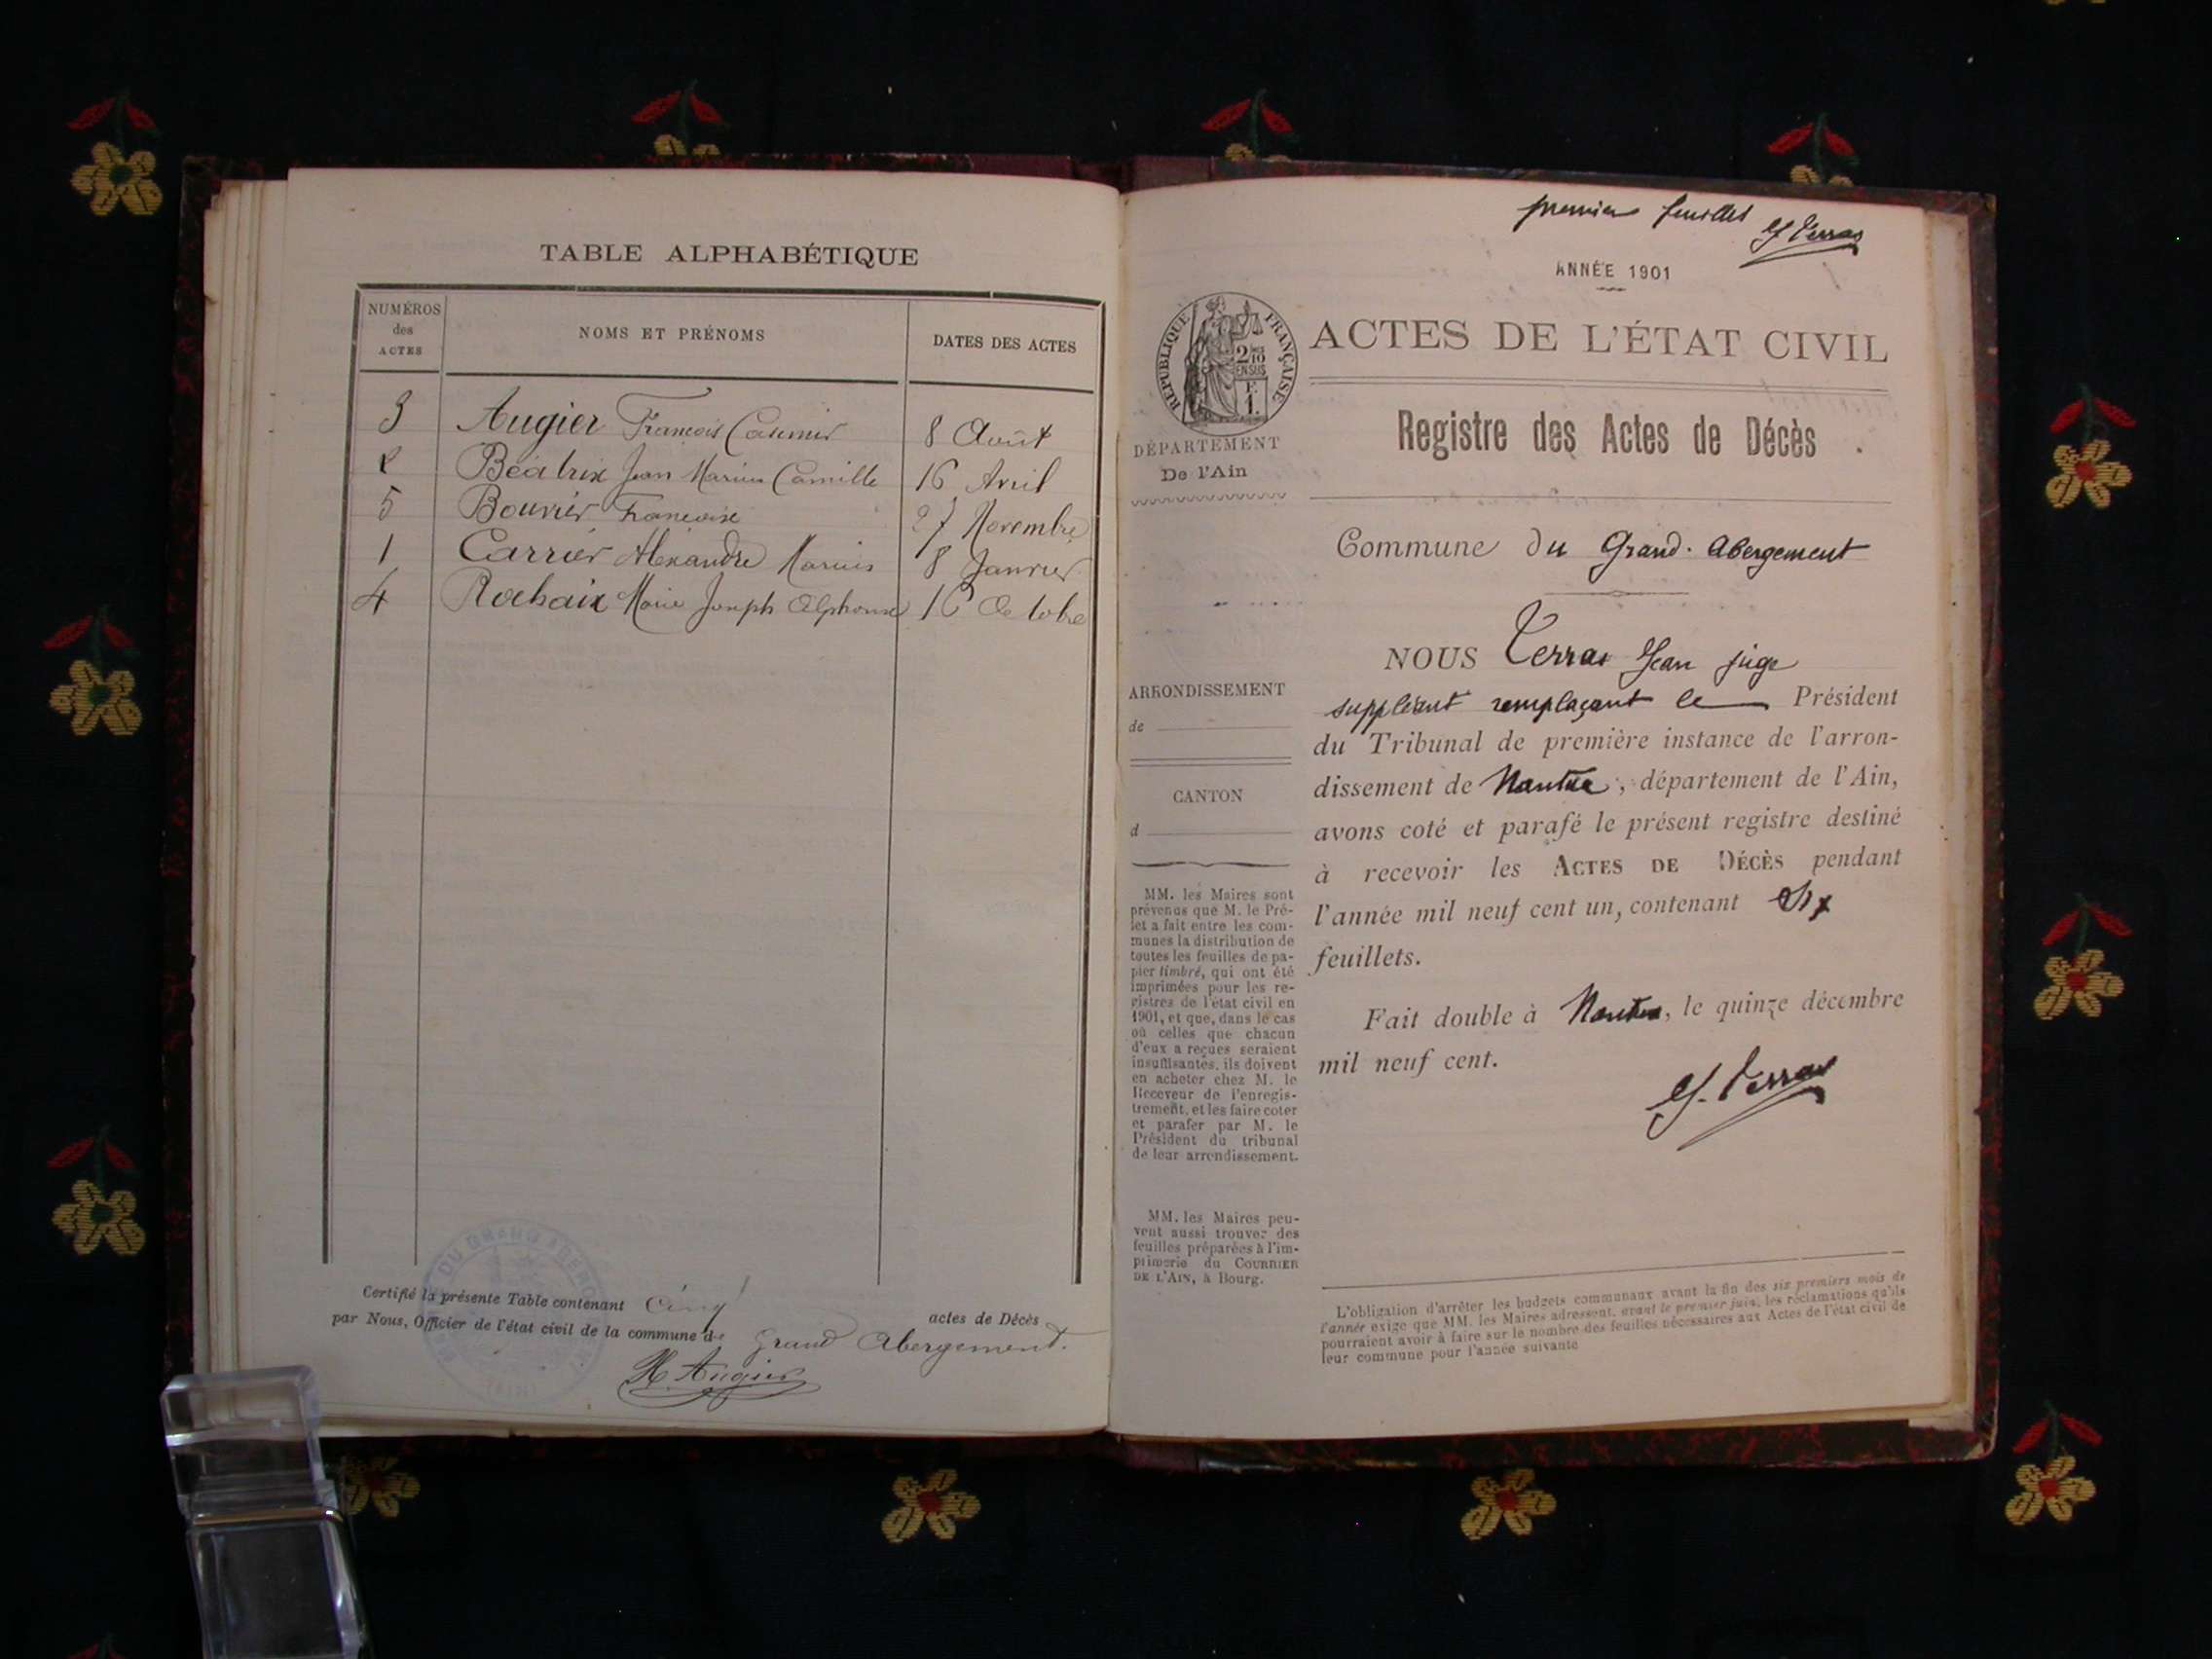 TABLE ALPHABÉTIQUE
NUMÉROS
des
ACTES
NOMS ET PRÉNOMS
DATES DES ACTES
3 Augier François Casimir 8 Août
2 Béatrix Jean Marius Camille 16 Avril
5 Bouvier Françoise 27 Novembre
1 Carrier Alexandre Marius 8 Janvier
4 Rochaix Marie Joseph Alphonse 16 Octobre
Certifié la présente Table contenant cinq actes de Décès
par Nous, Officier de l'état civil de la commune de Grand Abergement.
H. Augier
premier feuillet
J Terras
ANNÉE 1901
ACTES DE L'ÉTAT CIVIL
RÉPUBLIQUE FRANÇAISE
2/10
EN SUS
F.
1.
DÉPARTEMENT
De l'Ain
Registre des Actes de Décès
Commune du Grand-Abergement
ARRONDISSEMENT
de
CANTON
d
MM. les Maires sont
prévenus que M. le Pré-
fet a fait entre les com-
munes la distribution de
toutes les feuilles de pa-
pier timbré, qui ont été
imprimées pour les re-
gistres de l'état civil en
1901, et que, dans le cas
où celles que chacun
d'eux a reçues seraient
insuffisantes, ils doivent
en acheter chez M. le
Receveur de l'enregis-
trement, et les faire coter
et parafer par M. le
Président du tribunal
de leur arrondissement.
MM. les Maires peu-
vent aussi trouver des
feuilles préparées à l'im-
primerie du COURRIER
DE L'AIN, à Bourg.
NOUS Terras Jean juge
suppléant remplaçant le Président
du Tribunal de première instance de l'arron-
dissement de Nantua, département de l'Ain,
avons coté et parafé le présent registre destiné
à recevoir les ACTES DE DÉCÈS pendant
l'année mil neuf cent un, contenant Six
feuillets.
Fait double à Nantua, le quinze décembre
mil neuf cent.
J. Terras
L'obligation d'arrêter les budgets communaux avant la fin des six premiers mois de
l'année exige que MM. les Maires adressent, avant le premier juin, les réclamations qu'ils
pourraient avoir à faire sur le nombre des feuilles nécessaires aux Actes de l'état civil de
leur commune pour l'année suivante